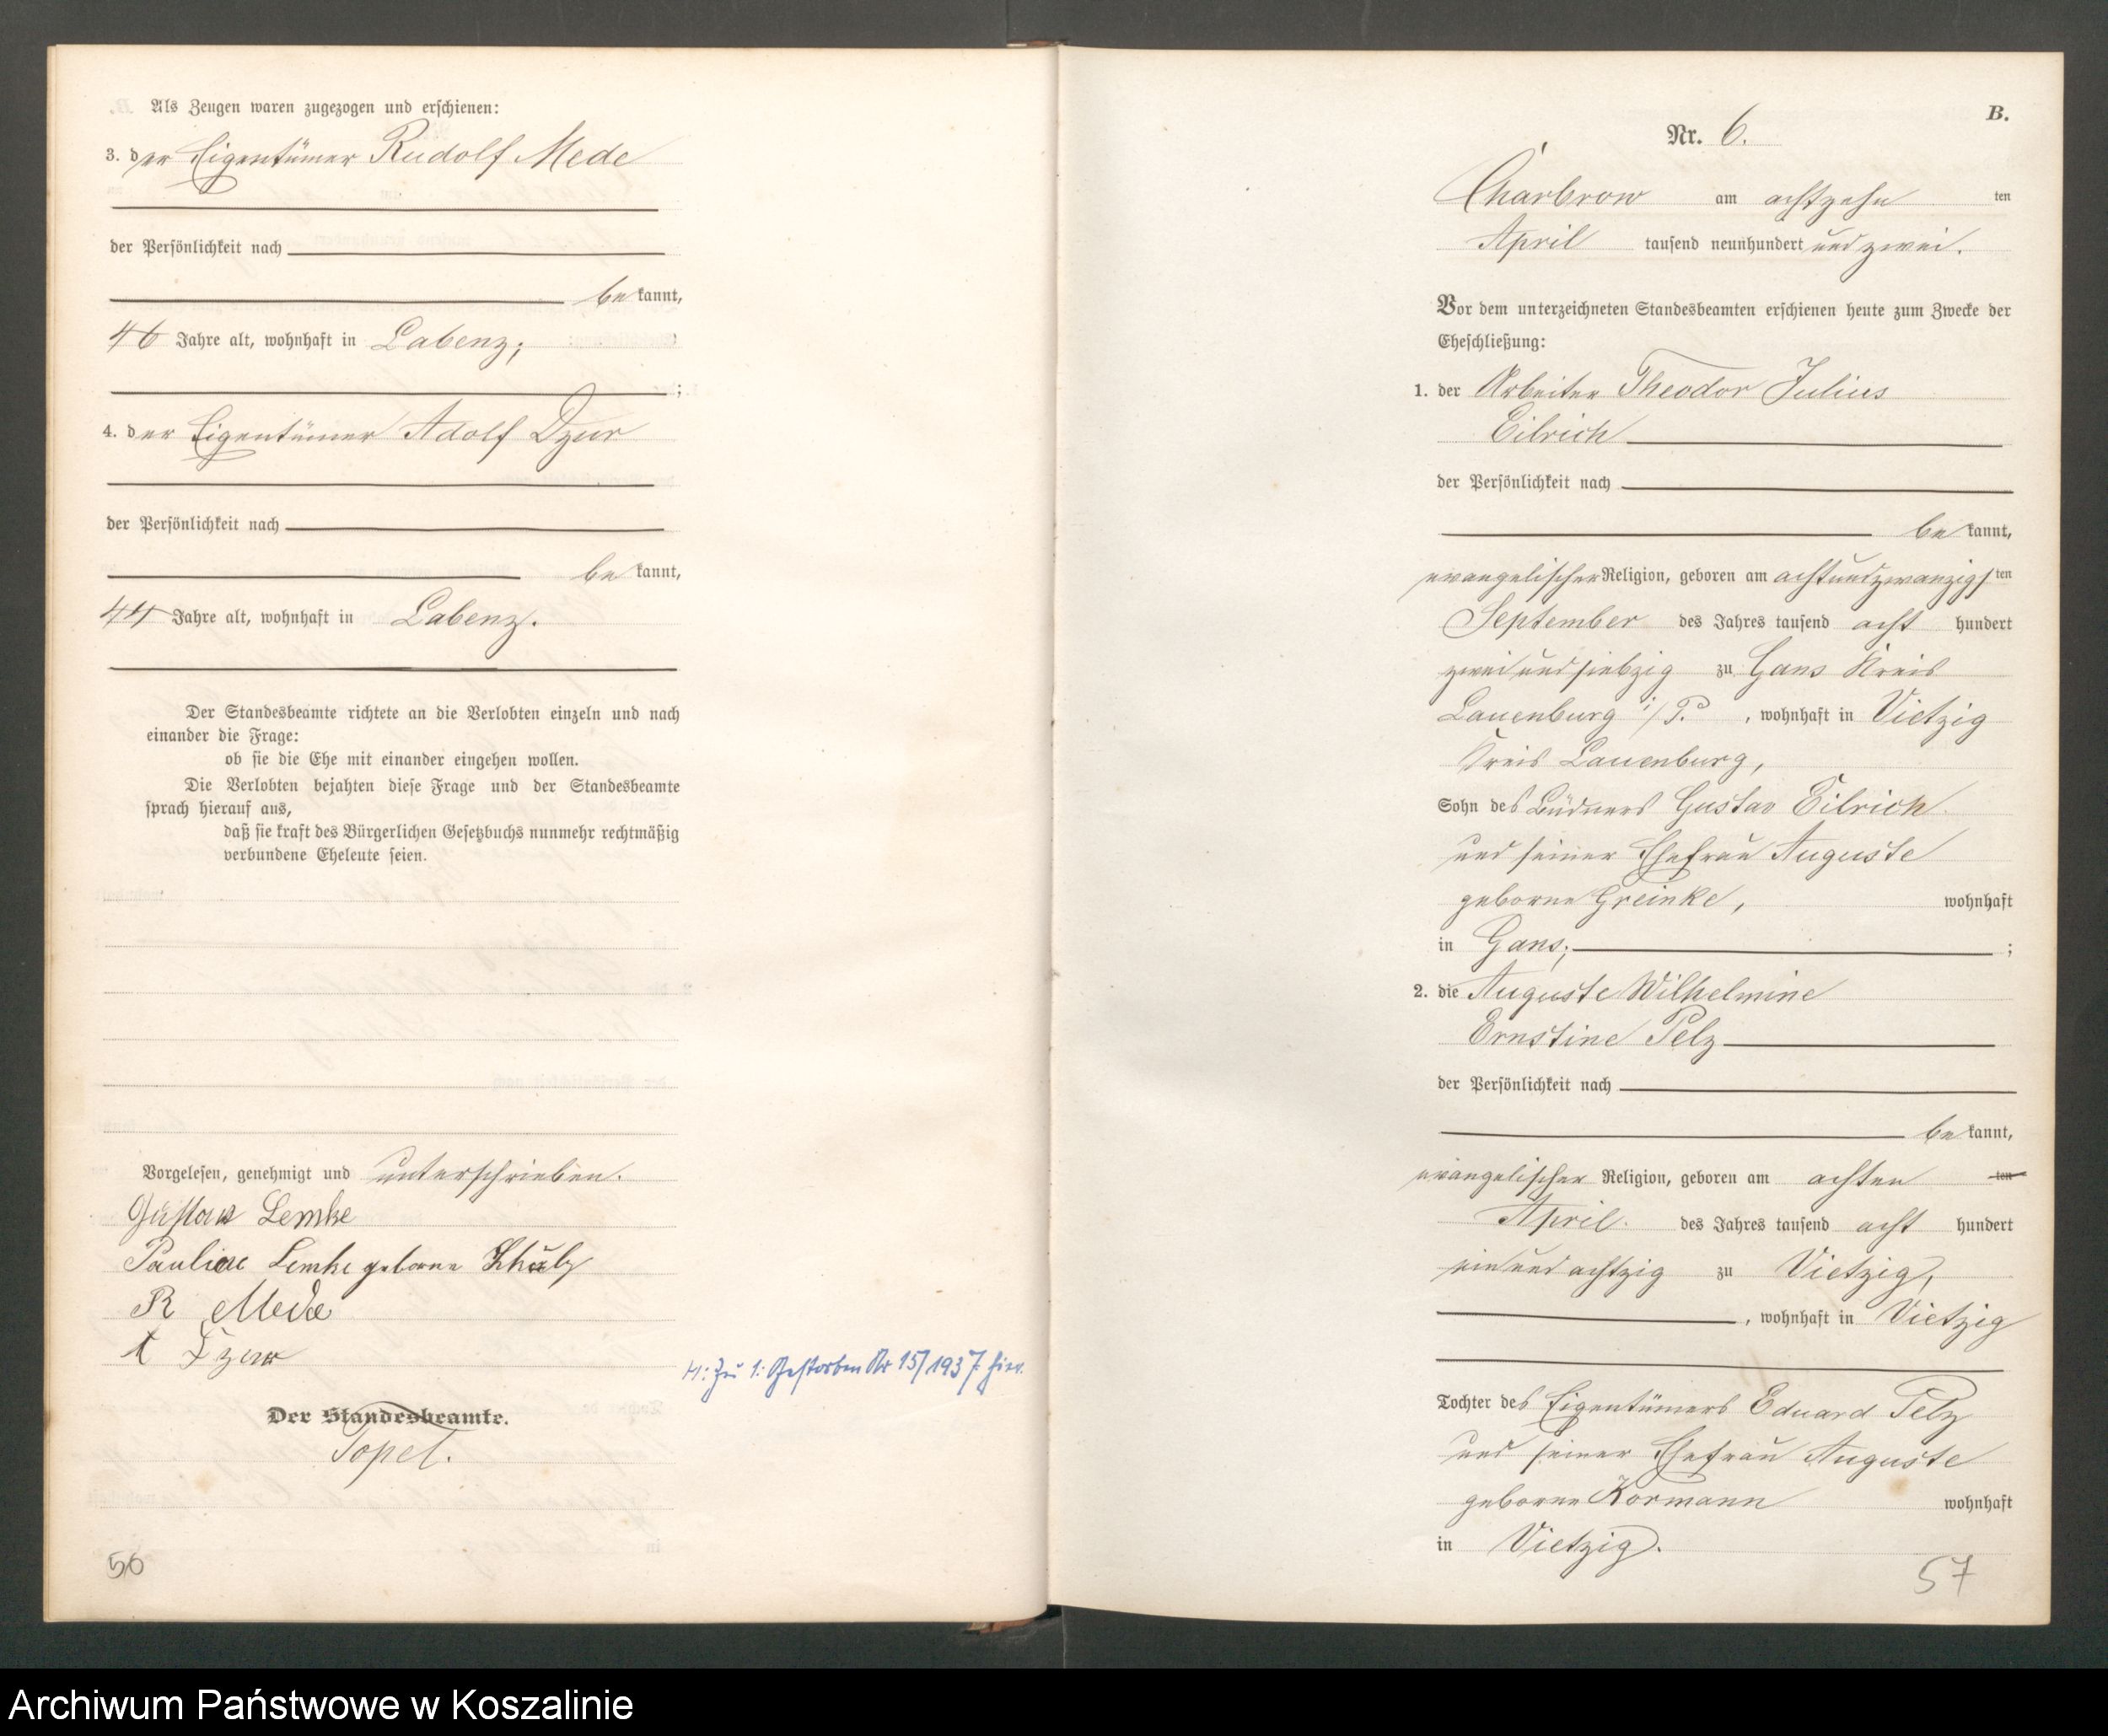 Als Zeugen waren zugezogen und erschienen:
3. der Eigentümer Rudolf Mede
der Persönlichkeit nach
bekannt,
46 Jahre alt, wohnhaft in Labenz;
;
4. der Eigentümer Adolf Dzur
der Persönlichkeit nach
bekannt,
44 Jahre alt, wohnhaft in Labenz.
Der Standesbeamte richtete an die Verlobten einzeln und nach
einander die Frage:
ob sie die Ehe mit einander eingehen wollen.
Die Verlobten bejahten diese Frage und der Standesbeamte
sprach hierauf aus,
daß sie kraft des Bürgerlichen Gesetzbuchs nunmehr rechtmäßig
verbundene Eheleute seien.
Vorgelesen, genehmigt und unterschrieben.
Gustav Lemke
Pauline Lemke geborne
R Mede
A Dzur
H: Zu 1: Gestorben Nr 15/1937 hier.
Der Standesbeamte.
Topel.
56
B.
Nr. 6.
Charbrow am achtzehn ten
April tausend neunhundert und zwei.
Vor dem unterzeichneten Standesbeamten erschienen heute zum Zwecke der
Eheschließung:
1. der Arbeiter Theodor Julius
Eilrich
der Persönlichkeit nach
bekannt,
evangelischer Religion, geboren am achtundzwanzigsten
September des Jahres tausend acht hundert
zweiundsiebzig zu Gans Kreis
Lauenburg i/P. , wohnhaft in Vietzig
Kreis Lauenburg,
Sohn des Büdners Gustav Eilrich
und seiner Ehefrau Auguste
geborne Greinke, wohnhaft
in Gans; ;
2. die Auguste Wilhelmine
Ernstine Pelz
der Persönlichkeit nach
bekannt,
evangelischer Religion, geboren am achten ten
April. des Jahres tausend acht hundert
einundachtzig zu Vietzig,
, wohnhaft in Vietzig
Tochter des Eigentümers Eduard Pelz
und seiner Ehefrau Auguste
geborne Kormann wohnhaft
in Vietzig.
57
Archiwum Państwowe w Koszalinie